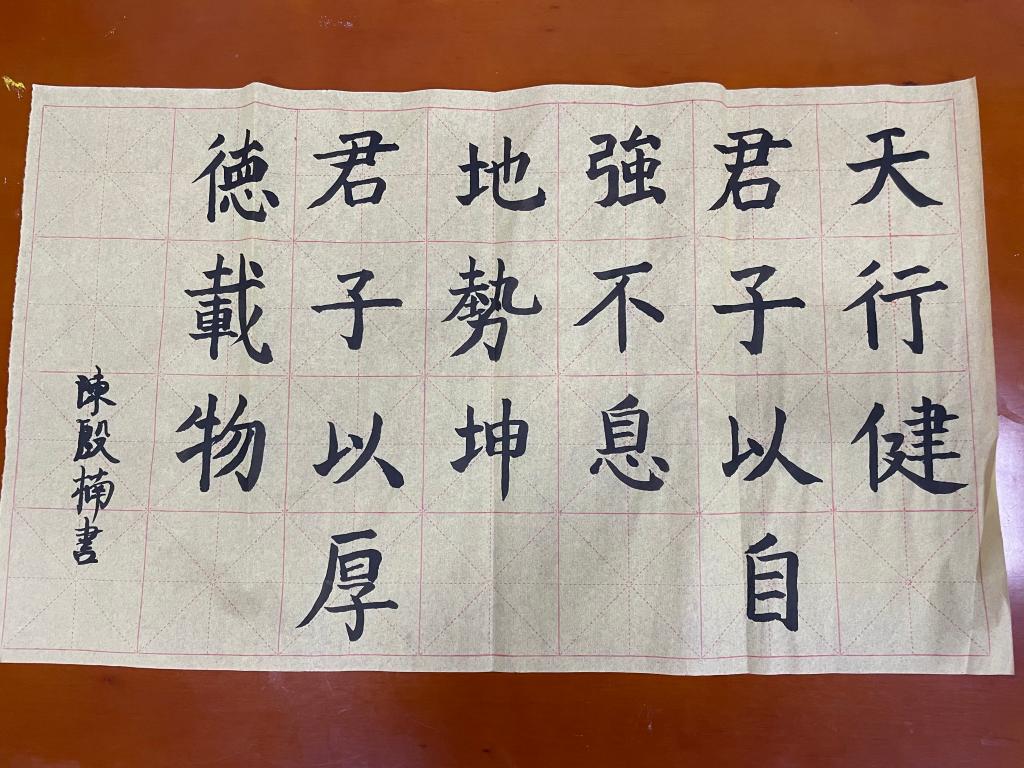 天行健
君子以自
強不息
地勢坤
君子以厚
德載物
陳殷楠書